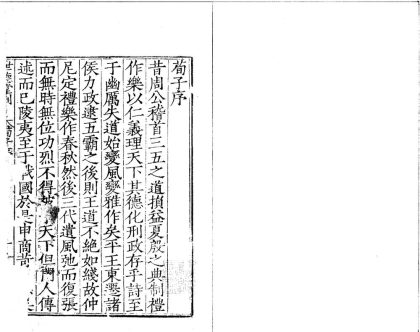 荀子序
昔周公稽首三五之道損益夏殷之典制禮
作樂以仁義理天下其德化刑政存乎詩至
于幽厲失道始變風變雅作矣平王東遷諸
侯力政逮五霸之後則王道不絕如綫故仲
尼定禮樂作春秋然後三代遺風弛而復張
而無時無位功烈不得被于天下但門人傳
述而已陵夷至于戰國於是申商苛
世德堂刊